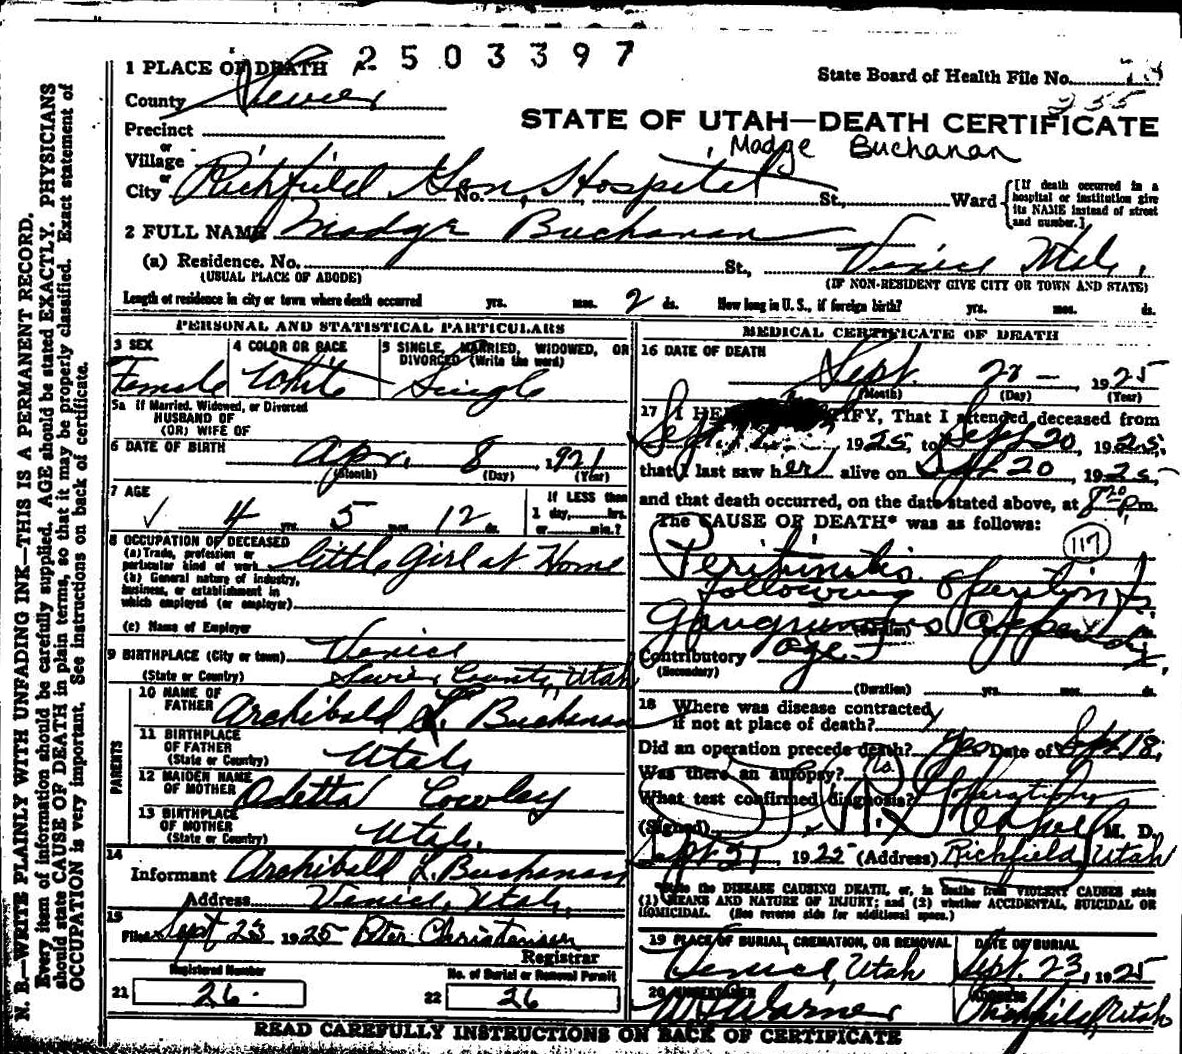 2503397
1 PLACE OF DEATH
State Board of Health File No.
235
County Sevier
STATE OF UTAH—DEATH CERTIFICATE
Precinct
or
Madge Buchanan
Village
or
City Richfield Gen. Hospital No. St., Ward
[If death occurred in a hospital or institution give its NAME instead of street and number.]
2 FULL NAME Madge Buchanan
(a) Residence. No. St., Venice Utah.
(USUAL PLACE OF ABODE) (IF NON-RESIDENT GIVE CITY OR TOWN AND STATE)
Length of residence in city or town where death occurred yrs. mos. 2 ds. How long in U. S., if foreign birth? yrs. mos. ds.
PERSONAL AND STATISTICAL PARTICULARS
3 SEX 4 COLOR OR RACE 5 SINGLE, MARRIED, WIDOWED, OR DIVORCED (Write the word)
Female White Single
5a If Married, Widowed, or Divorced
HUSBAND OF
(OR) WIFE OF
6 DATE OF BIRTH Apr. 8, 1921
(Month) (Day) (Year)
7 AGE
4 yrs. 5 mos. 12 ds.
If LESS than
1 day, hrs.
or min.?
8 OCCUPATION OF DECEASED
(a) Trade, profession or
particular kind of work little girl at Home
(b) General nature of industry,
business, or establishment in
which employed (or employer)
(c) Name of Employer
9 BIRTHPLACE (City or town) Venice
(State or Country) Sevier County, Utah
PARENTS
10 NAME OF
FATHER Archibald L. Buchanan
11 BIRTHPLACE
OF FATHER
(State or Country) Utah
12 MAIDEN NAME
OF MOTHER Odetta Cowley
13 BIRTHPLACE
OF MOTHER
(State or Country) Utah.
14
Informant Archibald L. Buchanan
Address Venice, Utah.
15
Filed Sept 23 1925 Peter Christensen
Registrar
Registered Number No. of Burial or Removal Permit
21 26. 22 26
MEDICAL CERTIFICATE OF DEATH
16 DATE OF DEATH
Sept. , 1925
(Month) (Day) (Year)
17 I HEREBY CERTIFY, That I attended deceased from
1925, to Sept 20, 1925,
that I last saw her alive on Sept 20, 1925,
and that death occurred, on the date stated above, at 8 20 p.m.
The CAUSE OF DEATH* was as follows:
117
Peritonitis
following operation
gangrenous appendix,
(Duration)
Contributory age
(Secondary)
(Duration) yrs. mos. ds.
18 Where was disease contracted
if not at place of death?
Did an operation precede death? Yes Date of Sept. 18,
Was there an autopsy? No
What test confirmed diagnosis? Operation
(Signed) M. D.
Sept 21, 1925 (Address) Richfield, Utah
*State the DISEASE CAUSING DEATH, or, in deaths from VIOLENT CAUSES state
(1) MEANS AND NATURE OF INJURY; and (2) whether ACCIDENTAL, SUICIDAL OR
HOMICIDAL. (See reverse side for additional space.)
19 PLACE OF BURIAL, CREMATION, OR REMOVAL DATE OF BURIAL
Venice, Utah Sept. 23, 1925
20 UNDERTAKER ADDRESS
Warner Richfield, Utah
READ CAREFULLY INSTRUCTIONS ON BACK OF CERTIFICATE
N. B.—WRITE PLAINLY WITH UNFADING INK—THIS IS A PERMANENT RECORD.
Every item of information should be carefully supplied. AGE should be stated EXACTLY. PHYSICIANS
should state CAUSE OF DEATH in plain terms, so that it may be properly classified. Exact statement of
OCCUPATION is very important. See instructions on back of certificate.